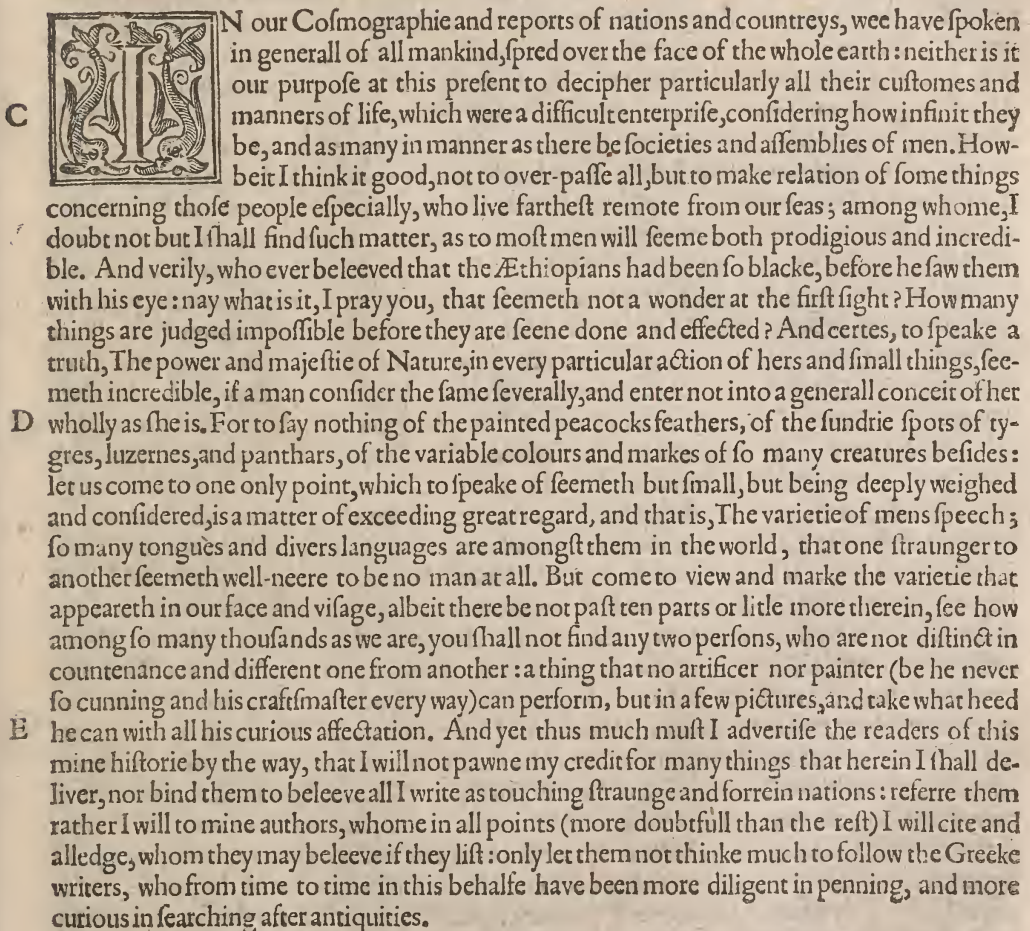 IN our Coſmographie and reports of nations and countreys, wee have ſpoken
in generall of all mankind, ſpred over the face of the whole earth: neither is it
our purpoſe at this preſent to decipher particularly all their cuſtomes and
C manners of life, which were a difficult enterpriſe, conſidering how infinit they
be, and as many in manner as there be ſocieties and aſſemblies of men. How-
beit I think it good, not to over-paſſe all, but to make relation of ſome things
concerning thoſe people eſpecially, who live fartheſt remote from our ſeas; among whome, I
doubt not but I ſhall find ſuch matter, as to moſt men will ſeeme both prodigious and incredi-
ble. And verily, who ever beleeved that the Æthiopians had been ſo blacke, before he ſaw them
with his eye: nay what is it, I pray you, that ſeemeth not a wonder at the firſt ſight? How many
things are judged impoſſible before they are ſeene done and effected? And certes, to ſpeake a
truth, The power and majeſtie of Nature, in every particular action of hers and ſmall things, ſee-
meth incredible, if a man conſider the ſame ſeverally, and enter not into a generall conceit of her
D wholly as ſhe is. For to ſay nothing of the painted peacocks feathers, of the ſundrie ſpots of ty-
gres, luzernes, and panthars, of the variable colours and markes of ſo many creatures beſides:
let us come to one only point, which to ſpeake of ſeemeth but ſmall, but being deeply weighed
and conſidered, is a matter of exceeding great regard, and that is, The varietie of mens ſpeech;
ſo many tongues and divers languages are amongſt them in the world, that one ſtraunger to
another ſeemeth well-neere to be no man at all. But come to view and marke the varietie that
appeareth in our face and viſage, albeit there be not paſt ten parts or litle more therein, ſee how
among ſo many thouſands as we are, you ſhall not find any two perſons, who are not diſtinct in
countenance and different one from another: a thing that no artificer nor painter (be he never
ſo cunning and his craftſmaſter every way) can perform, but in a few pictures, and take what heed
E he can with all his curious affectation. And yet thus much muſt I advertiſe the readers of this
mine hiſtorie by the way, that I will not pawne my credit for many things that herein I ſhall de-
liver, nor bind them to beleeve all I write as touching ſtraunge and forrein nations: referre them
rather I will to mine authors, whome in all points (more doubtfull than the reſt) I will cite and
alledge, whom they may beleeve if they liſt: only let them not thinke much to follow the Greeke
writers, who from time to time in this behalfe have been more diligent in penning, and more
curious in ſearching after antiquities.